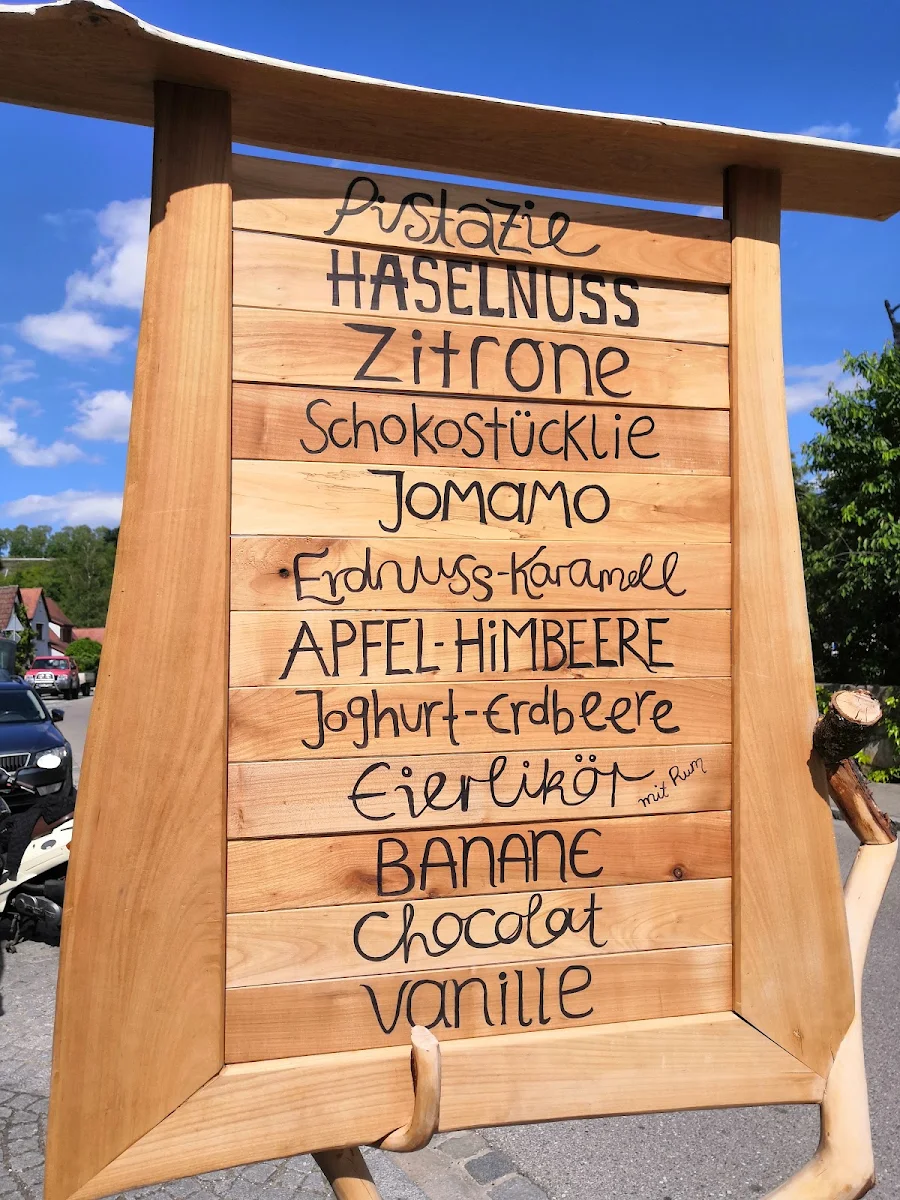 Pistazie
HASELNUSS
Zitrone
Schokostücklie
Jomamo
Erdnuss-Karamell
APFEL-HiMBEERE
Joghurt-Erdbeere
Eierlikör mit Rum
BANANE
Chocolat
Vanille